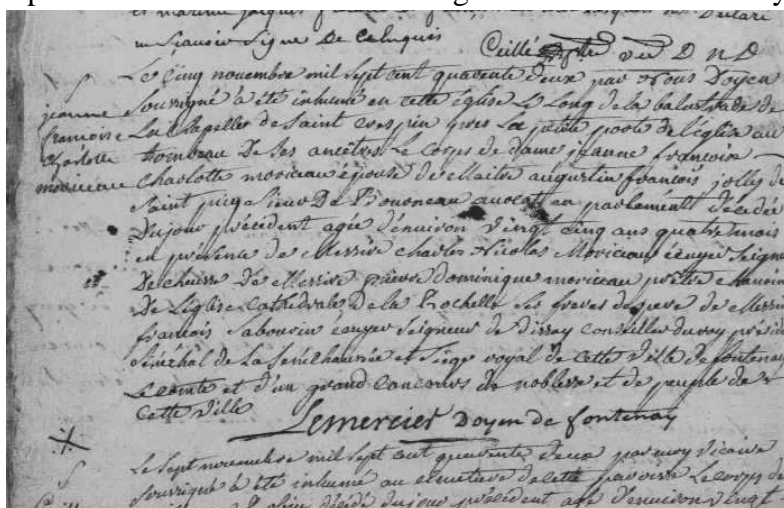 un Siausié Signé De
Ceillé
Le Cinq novembre mil Sept cent quarente deux par Nous Doyen
Souvigné à été inhumé en cette Eglise Le Long de la balustrade de
La Chapelle de Saint Crespin pres La petite porte de l'église au
tombeau De Ses ancêtres Le Corps de dame jeanne francoise
Charlotte moriceau épouse de Maitre augustin francois jolly de
Saint Sieur De avocat en parlement décédée
Du jour précédent agée d'environ vingt cinq ans quatre mois
en présence de Messire charles Nicolas Moriceau écuyer Seigneur
De cheusse De Messire pierre dominique moriceau prêtre chanoine
De L'église Cathédrale De la Rochelle Ses freres de pere de Messire
francois Sabourin écuyer Seigneur de Dissay Conseiller du roy présid
Sénéchal de La Sénéchaussée et Siege royal de Cette Ville de fontenay
Le Comte et d'un grand Concours de noblesse et de peuple de
Cette Ville
jeanne
francoise
Charlotte
moriceau
Lemercier Doyen de fontenay
Le Sept novembre mil Sept cent quarente deux par moy Vicaire
Souvigné à été inhumé au cimetiere de cette paroisse Le Corps de
décédé du jour précédent agé d'environ vingt